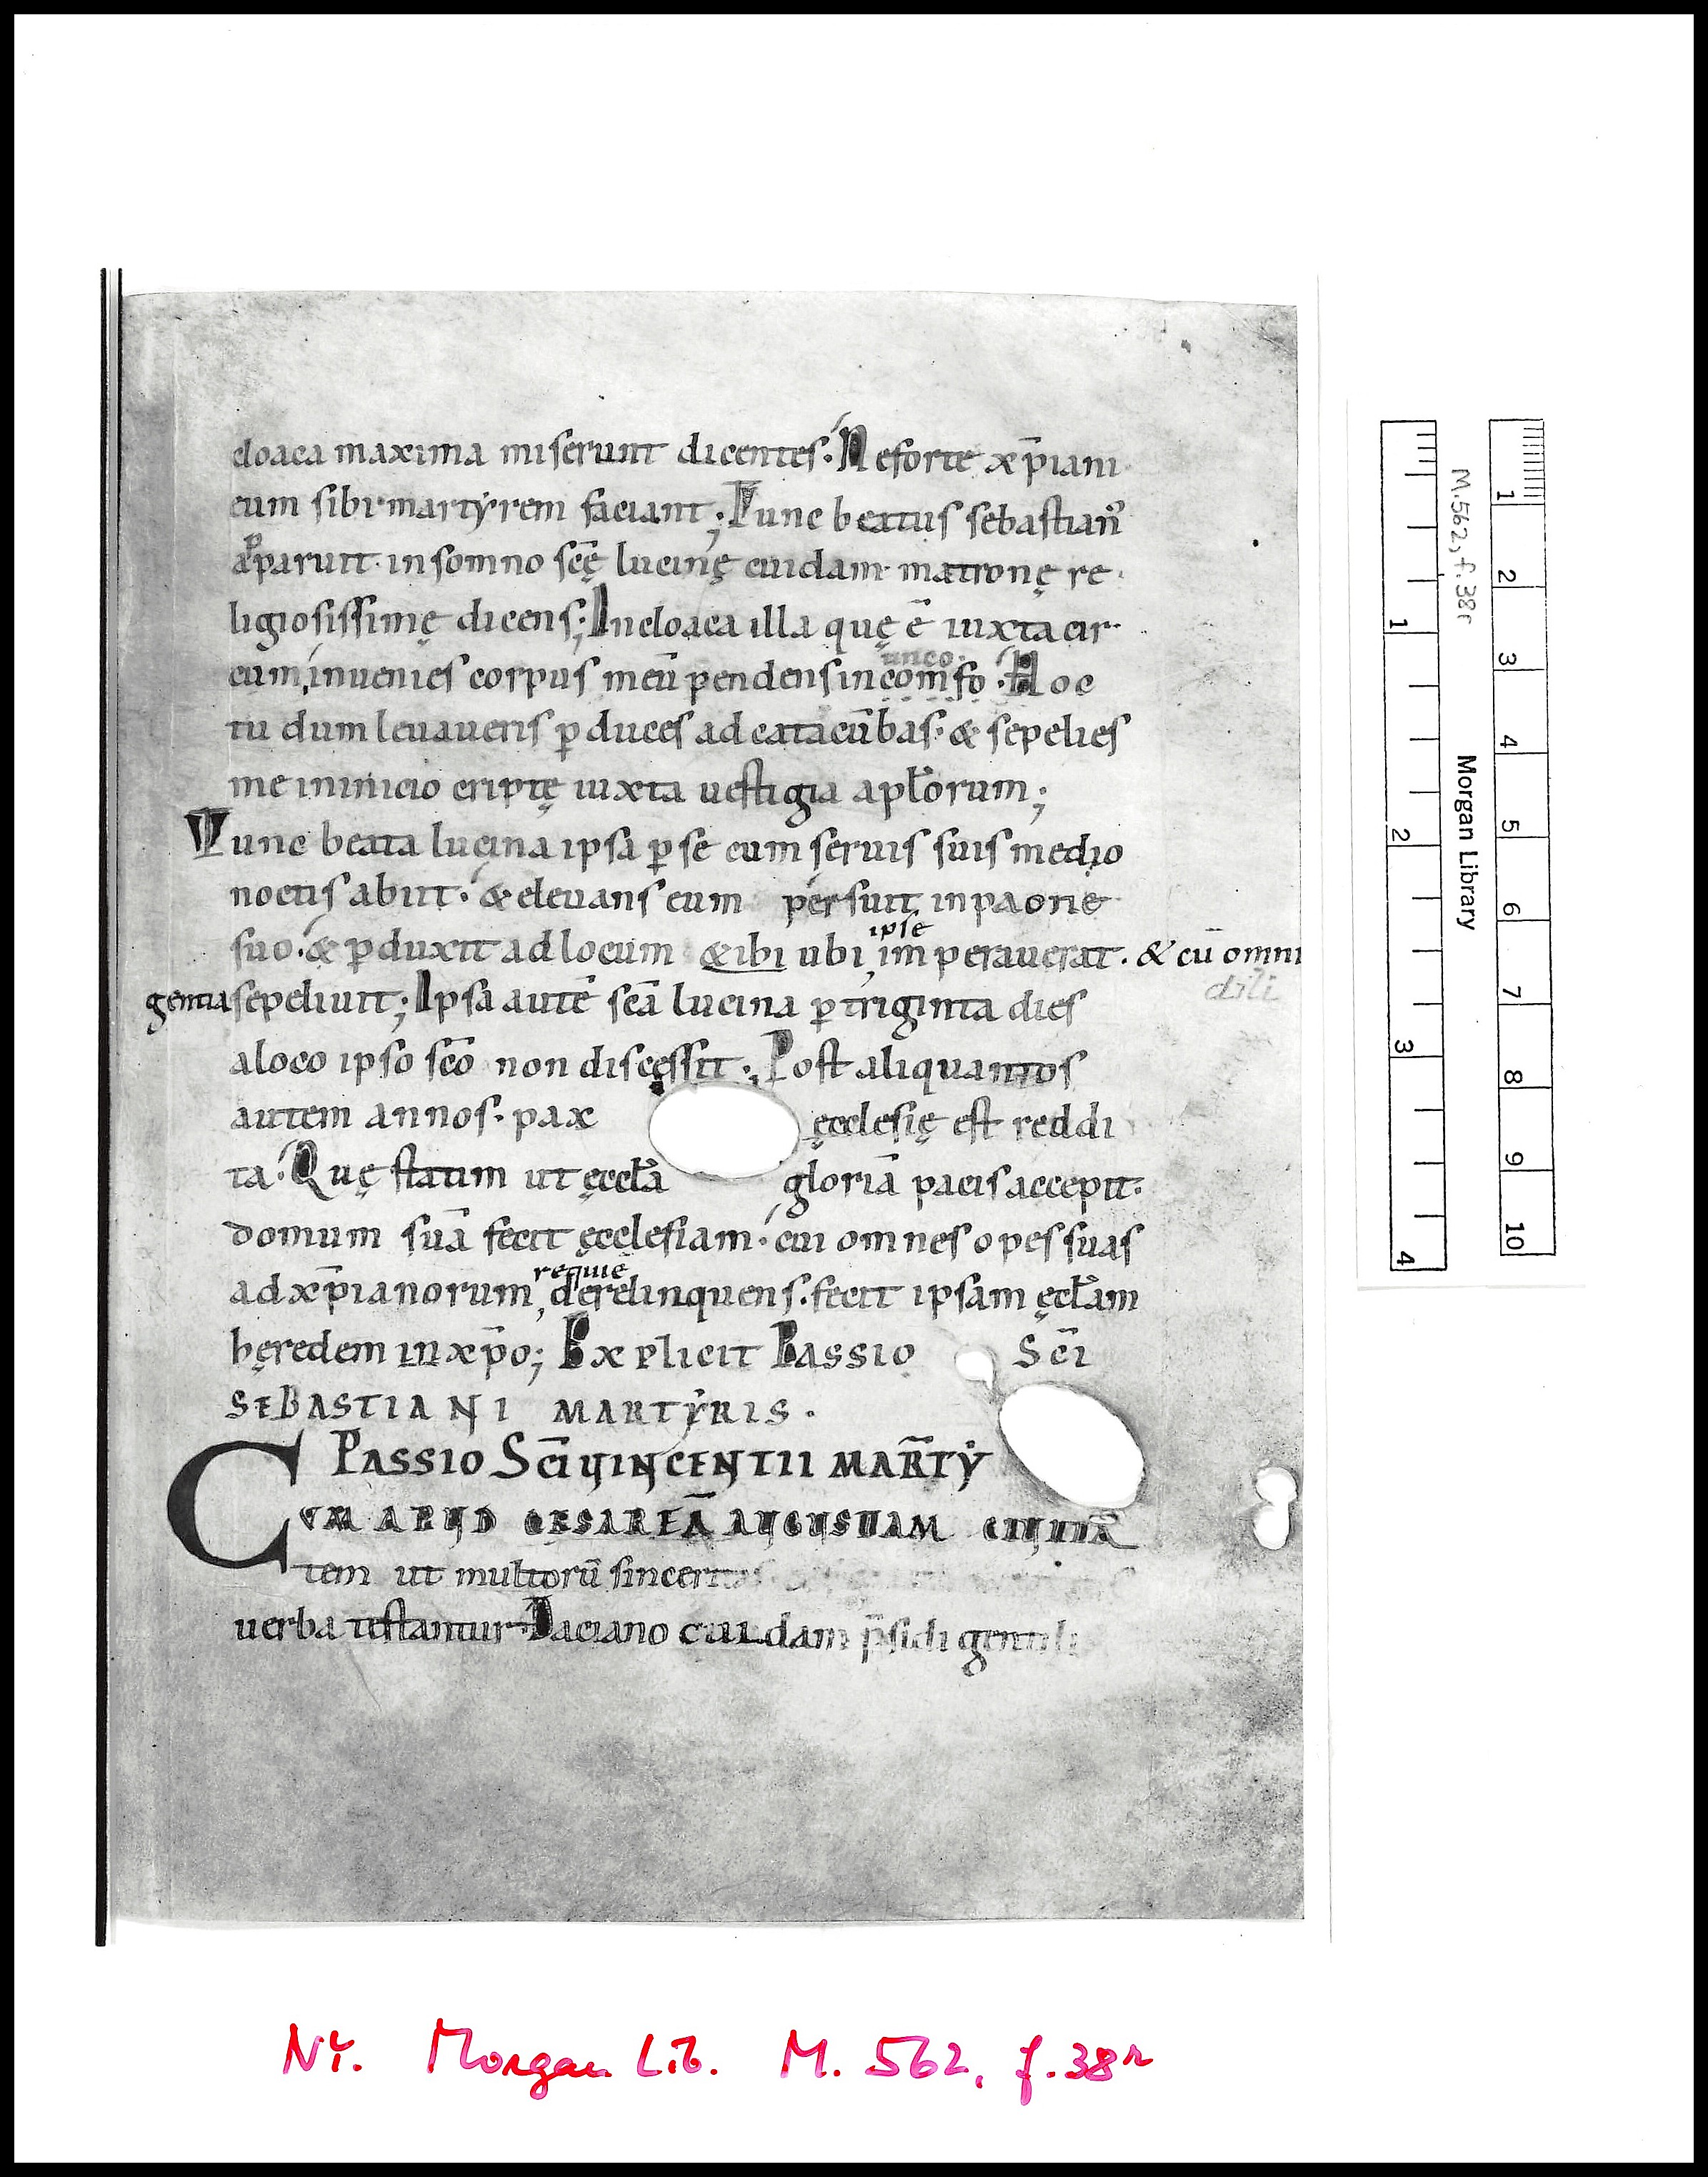 cloaca maxima miserunt dicentes. Ne forte xp̄iani
eum sibi martẏrem faciant; Tunc beatus sebastianꝰ
apparuit in somno scę̄ lucinę cuidam matronę re
ligiosissimę dicens; In cloaca illa quę ē iuxta cir
unco.
cum, inuenies corpus meū pendens in comso. Hoc
tu dum leuaueris ꝑduces ad catacūbas. & sepelies
me in inicio criptę iuxta uestigia apl̄orum;
Tunc beata lucina ipsa ꝑ se cum seruis suis medio
noctis abiit. & eleuans eum persuit in paone
ipse
suo. & ꝑduxit ad locum & ibi ubi, imperauerat. & cū omni
dili
gentia sepeliuit; Ipsa autē scā lucina ꝑ triginta dies
a loco ipso scō non discęssit. Post aliquantos
autem annos. pax ęcclesię est reddi
ta. Quę statim ut ęccl̄a gloriā pacis accepit.
domum suā fecit ęcclesiam. cui omnes opes suas
requiē
ad xp̄ianorum, derelinquens. fecit ipsam ęcl̄am
hęredem in xp̄o; Explicit Passio Scī
SEBASTIANI MARTẎRIS.
PASSIO SCĪ VINCENTII MAR̄TẎ
CVM APVD CĘSAREĀ AVGVSTAM CIVITA
tem ut multorū sincer
uerba testantur Daciano cuidam p̄sidi gentili
M.562, f.38r
Morgan Library
1 2 3 4
1 2 3 4 5 6 7 8 9 10
NY. Morgan Lib. M. 562, f. 38r